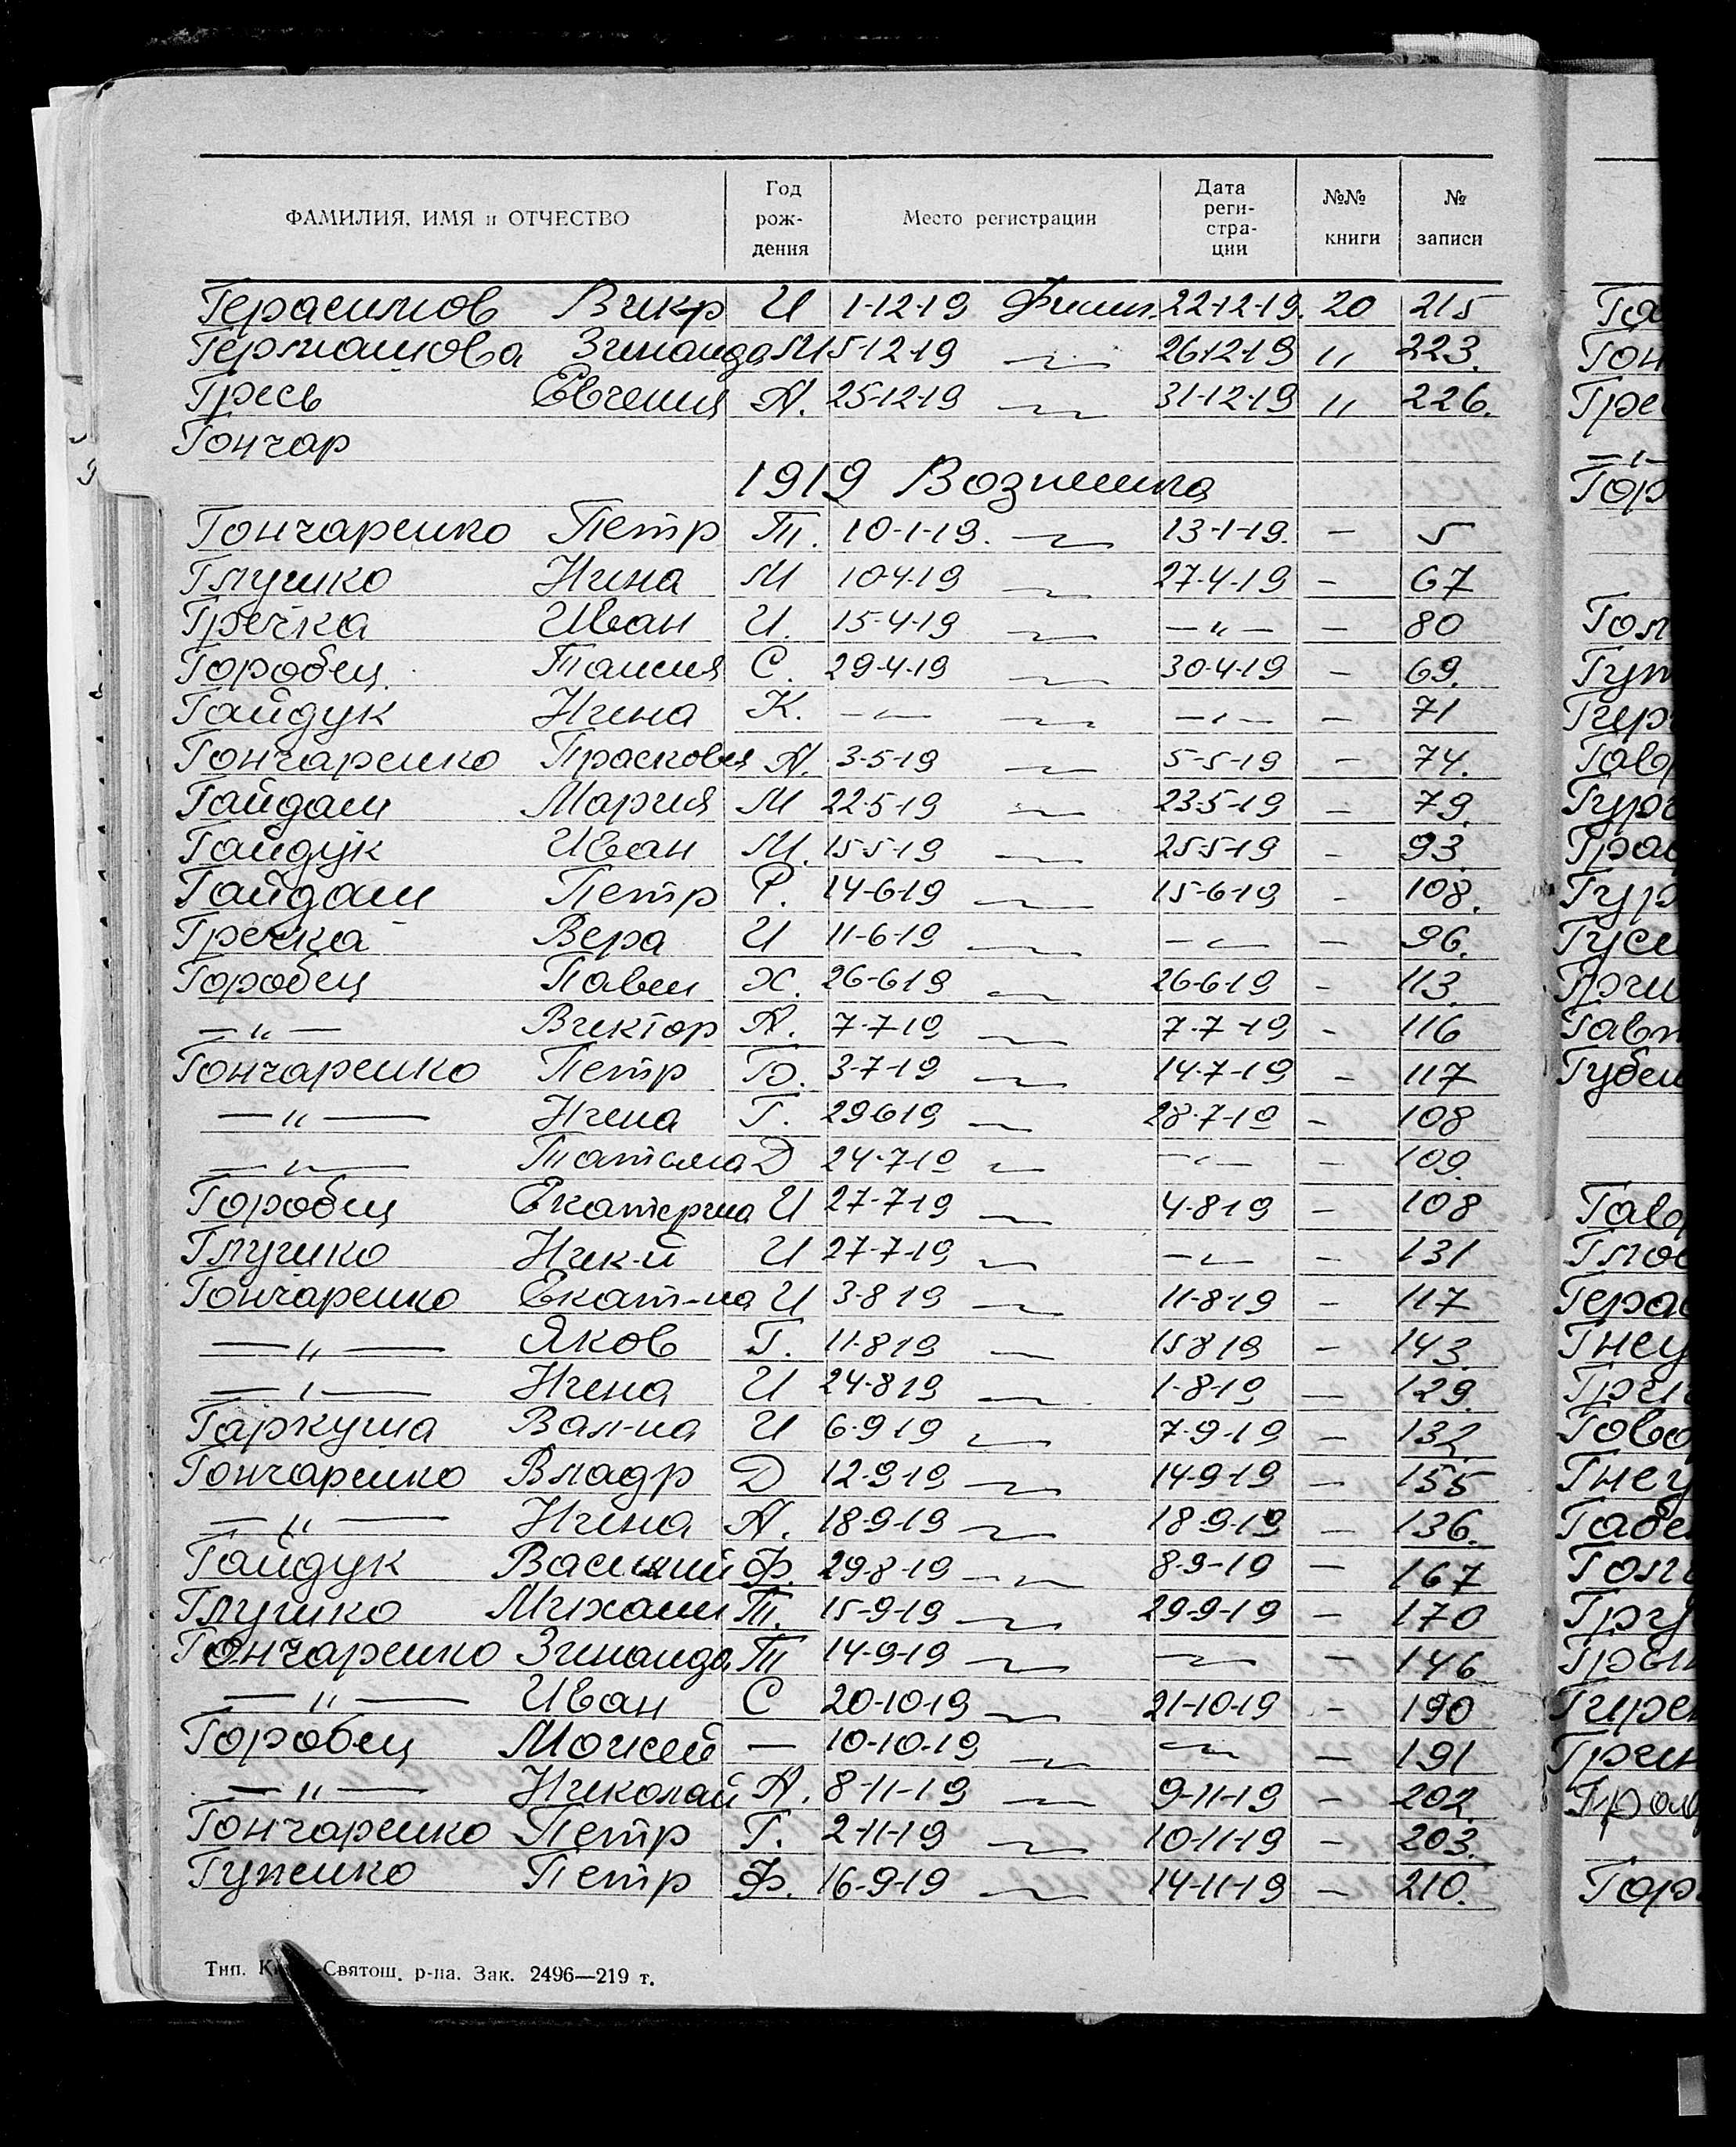 ФАМИЛИЯ, ИМЯ и ОТЧЕСТВО Год рож- дения Место регистрации Дата реги- стра- ции №№ книги № записи
Герасимов Викр И 1-12-19 22-12-19. 20 215
Германова Зинаида М 5-12-19 26-12-19 " 223.
Гресь Евгения А. 25-12-19 31-12-19 " 226.
Гончар
1919 Вознишка
Гончаренко Петр Т. 10-1-19. 13-1-19. — 5
Глушко Нина М 10-4-19 27-4-19 — 67
Гречка Иван И. 15-4-19 — " — — 80
Горобец Таисия С. 29-4-19 30-4-19 — 69.
Гайдук Нина К. — " — — " — — 71
Гончаренко Прасковья А. 3-5-19 5-5-19 — 74.
Гайдаш Мария М 22-5-19 23-5-19 — 79.
Гайдук Иван М. 15-5-19 25-5-19 — 93
Гайдаш Петр Р. 14-6-19 15-6-19 — 108.
Гречка Вера И 11-6-19 — " — — 96.
Горобец Павел Х. 26-6-19 26-6-19 — 113.
— " — Виктор А. 7-7-19 7-7-19 — 116
Гончаренко Петр 3-7-19 14-7-19 — 117
— " — Нина Г. 29-6-19 28-7-19 — 108
— " — Татьяна Д 24-7-19 — " — — 109.
Горобец Екатерина И 27-7-19 4-8-19 — 108
Глушко Ник-й И 27-7-19 — " — — 131
Гончаренко Екат-на И 3-8-19 11-8-19 — 117
— " — Яков Г. 11-8-19 15-8-19 — 143.
— " — Нина И 24-8-19 1-8-19 — 129.
Гаркуша Вал-на И 6-9-19 7-9-19 — 132.
Гончаренко Владр Д 12-9-19 14-9-19 — 155
— " — Нина А. 18-9-19 18-9-19 — 136.
Гайдук Василий Ф. 29-8-19 8-9-19 — 167
Глушко Михаил Т. 15-9-19 29-9-19 — 170
Гончаренко Зинаида Т 14-9-19 — " — — 146
— " — Иван С 20-10-19 21-10-19 — 190
Горобец Мокий — 10-10-19 — " — — 191
— " — Николай А. 8-11-19 9-11-19 — 202.
Гончаренко Петр Г. 2-11-19 10-11-19 — 203.
Гупенко Петр Ф. 16-9-19 14-11-19 — 210.
Тип. Святош. р-на. Зак. 2496—219 т.